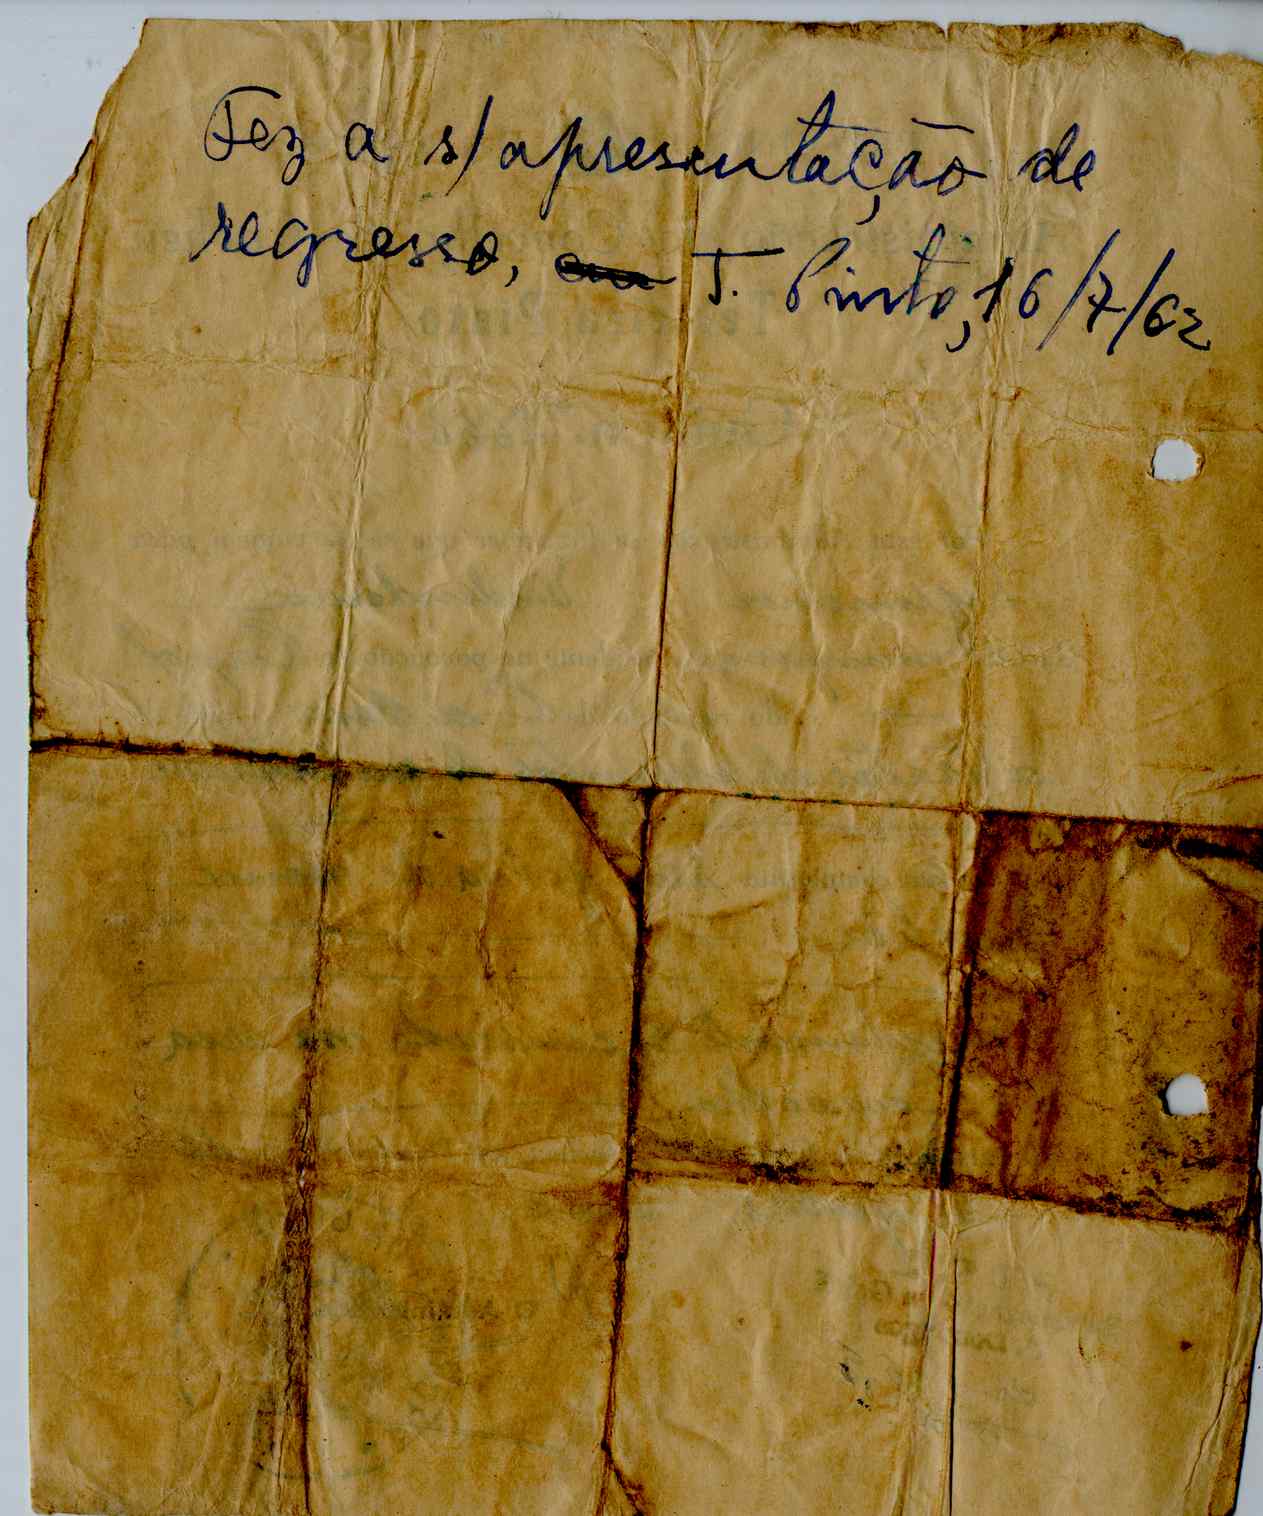 Fez a s/ apresentação de
regresso, T. Pinto, 16/7/62